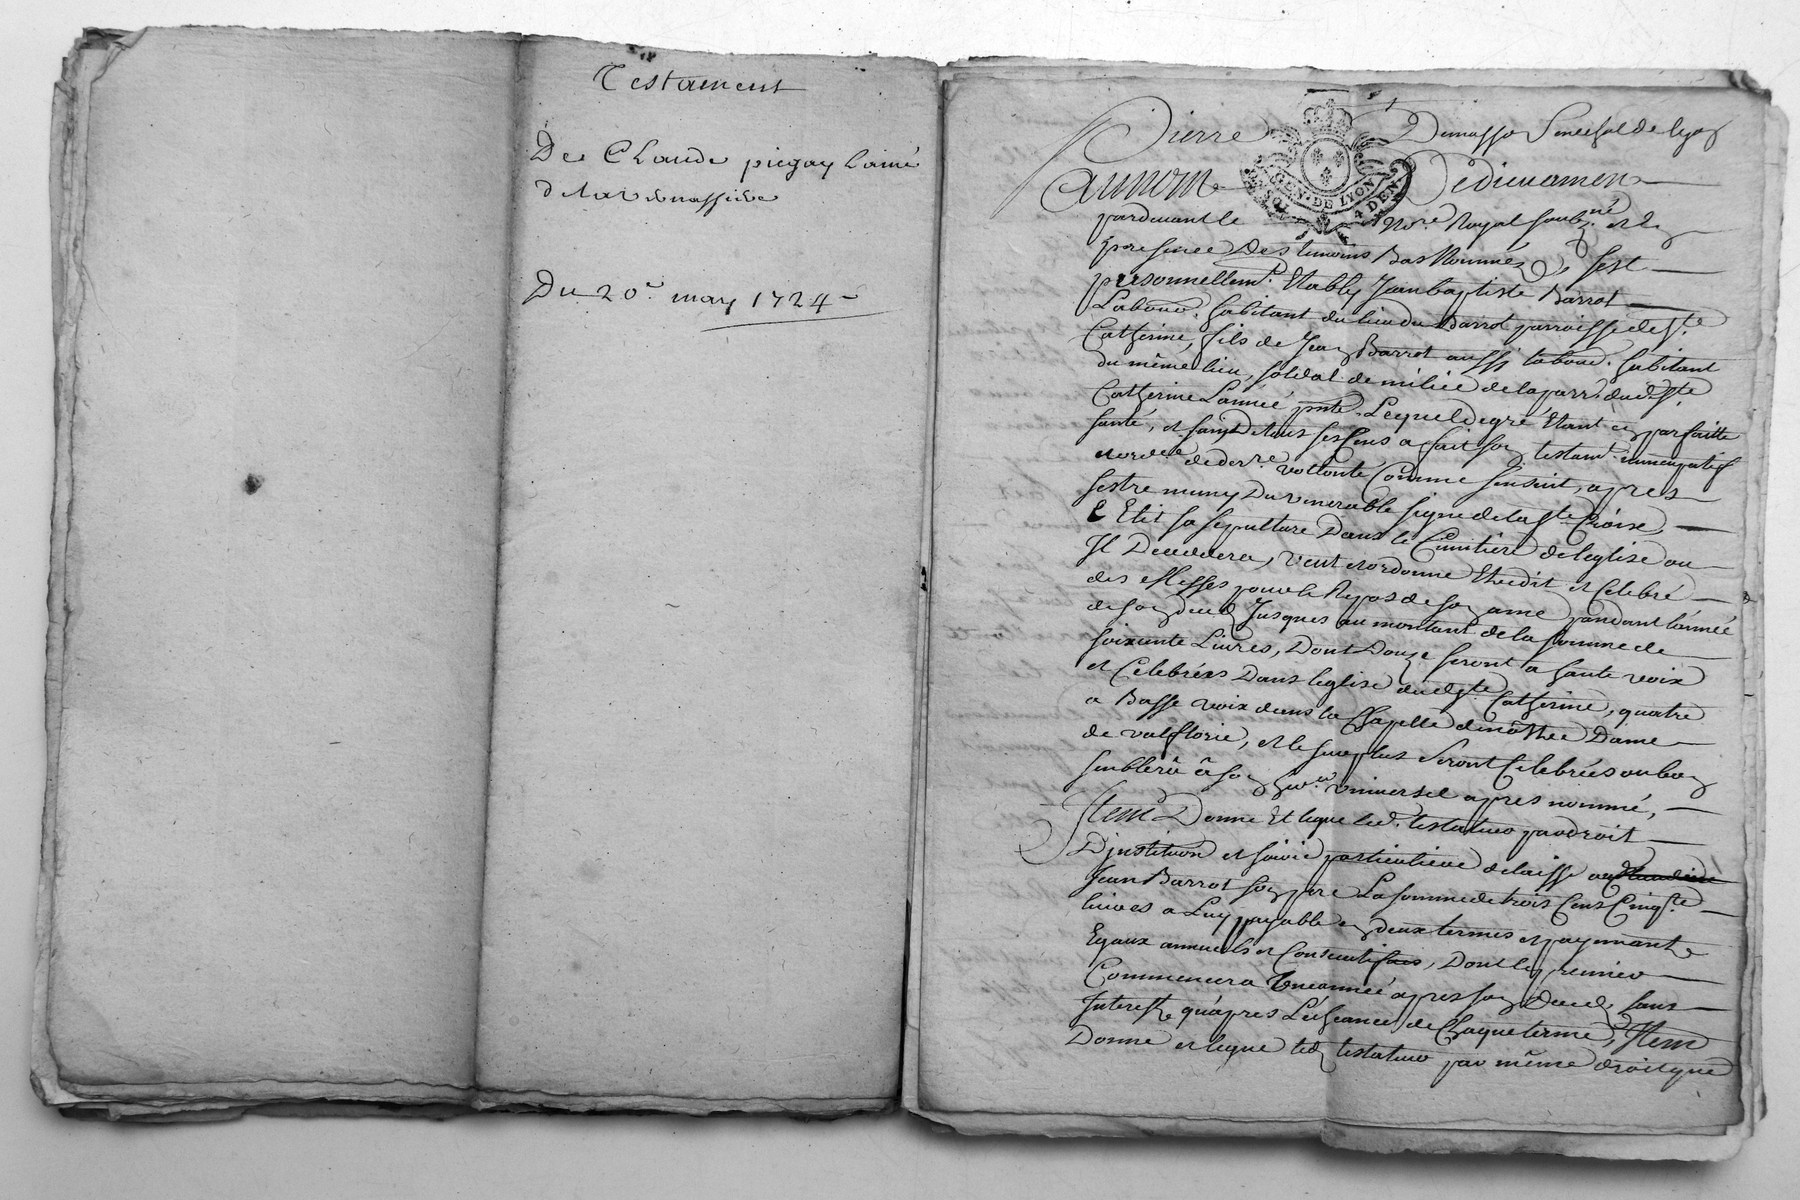 Testament
De Claude piegay lainé
Du 20e may 1724
Pierre Dumasso Senechal de lyon
GEN. DE LYON
4 DEN.
Aunom Dedieu amen
pardevant le No.re Royal soubz.né et en
presence Des temoins Bas Nommés s'est
personnellem.t Etably Jean baptiste Barrot
Labour. habitant du lieu du Barrot parroisse de S.te
Catherine, fils de Jean Barrot aussi labour. habitant
du même lieu, soldat de milice de la parr. dud. S.te
Catherine Lannée pnte. Lequel de gré Etant en parfaitte
santé, et sain de tous ses sens a fait son testam.t nuncupatif
et ordce. de derre. vollonté Comme sensuit, apres
sestre muny Du venerable signe de la S.te Croix,
E Elit sa sepulture Dans le Cimitière de leglise ou
Il Deceddera, veut et ordonne Etre dit et Celebré
des Messes pour le Repos de son ame pandant lannée
de son deces Jusques au montant de la somme de
soixante Livres, Dont Douze seront a haute voix
et Celebrées Dans leglise dud. S.te Catherine, quatre
a Basse voix dans la Chapelle de nôtre Dame
de valflorie, et le surplus seront Celebrées ou bon
semblera à son her. universel apres nommé,
Item Donne Et legue led. testateur par droit
D'jnstitution et hoirie particuliere delaisse a
Jean Barrot son pere La somme de trois Cens Cinq.te
livres a Luy payable en deux termes et payements
Egaux annuels et Consecutifs, Dont le premier
Commencera Une année apres son Deces sans
Interest qu'apres L'écheance de Chaque terme, Item
Donne et legue led. testateur par même droit que